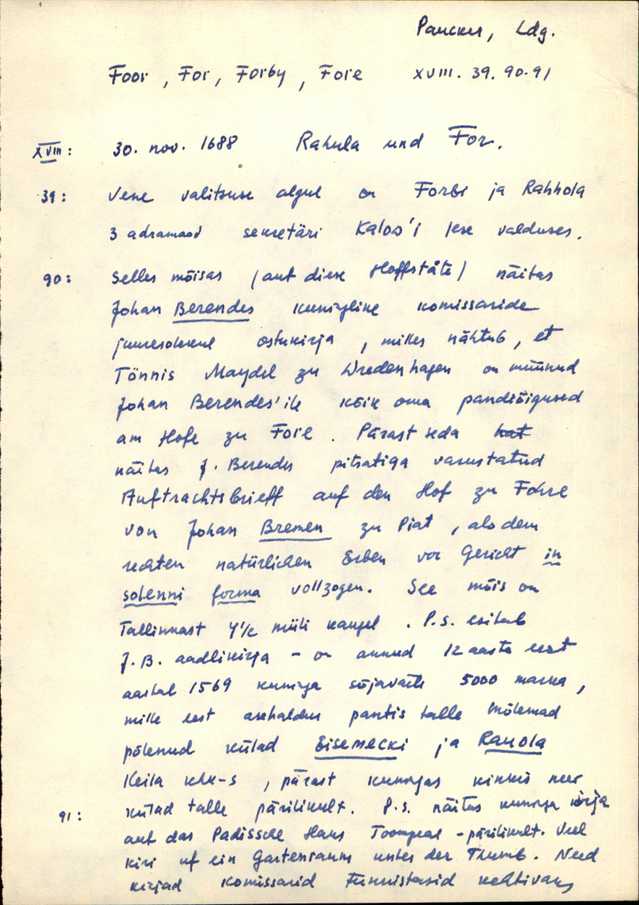 Paucker, Ldg.
Foor, For, Forby, Fore XVIII. 39. 90-91
XVIII: 30. nov. 1688 Rahula und For.
39: Vene valitsuse algul on Forbi ja Rahhola
3 adramaad sekretäri Kaloo'i lese valduses.
90: Selles mõisas (auf diese Hoffstäte) näitas
Johan Berendes kuningline komissaride
juuresolekul ostukirja, milles nähtub, et
Tönnis Maydel zu Wredenhagen on müünud
Johan Berendes'ile kõik oma pandiõigused
am Hofe zu Foie. Pärast seda hat
näitas J. Berendes pitsatiga varustatud
Auftrachtsbrieff auf den Hof zu Force
von Johan Bremen zu Piat, als dem
rechten natürlichen Erben vor Gericht in
solenni forma vollzogen. See mõis on
Tallinnast 4 1/2 miili kaugel. P.S. esitab
J.B. aadlikirja - on annud 12 aasta eest
aastal 1569 kuninga sõjaväele 5000 marka,
mille eest asehaldur pantis talle mõlemad
põlenud külad Eisemecki ja Rauola
Keila khk-s, pärast kuningas kinkis need
91: külad talle päriliselt. P.S. näitas kuninga kirja
auf das Padissche Haus Toompeal - päriliselt. Veel
kiri uf ein Gartenraum unter der Thumb. Need
kirjad komissarid tunnistasid kehtivaks